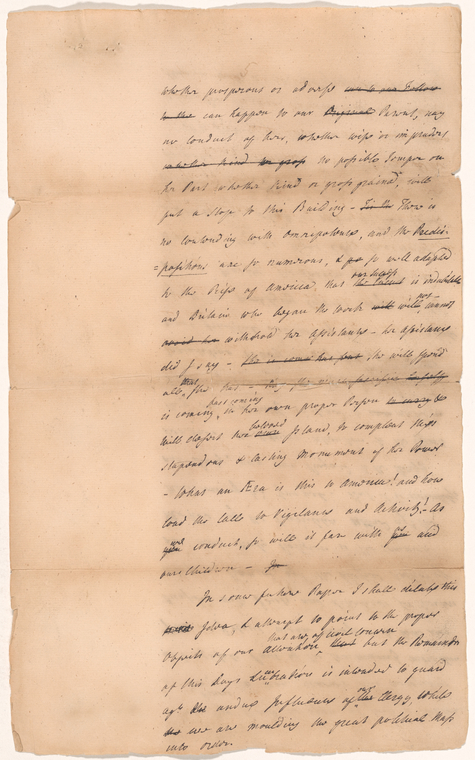 whether prosperous or adverse
to the can happen to our Original Parent, nay
no conduct of her, whether wise or imprudent,
no possible Temper on
her Part whether kind or gross grained, will
put a Stop to this Building - There is
no contending with Omnipotence, and the Predis-
=positions are so numerous, & so well adapted
to the Rise of America, that our success is indubitable
and Britain who began the work will not, cannot
withhold her assistance - her assistance
did I say - she will spend
all, she has
is coming, in her own proper Person
will desert her beloved Island, to compleat this
stupendous & lasting Monument of her Power
- What an Æra is this to America! and how
loud the Calls to Vigilance and Activity! As
we conduct, so will it fare with us and
our Children -
In some future Paper I shall debate this
Idea, & attempt to point to the proper
Objects of our attention, that are of civil concern but the Remainder
of this Days Lucubration is intended to guard
agt. undue Influences of our Clergy while
we are moulding the great political Mass
into order.